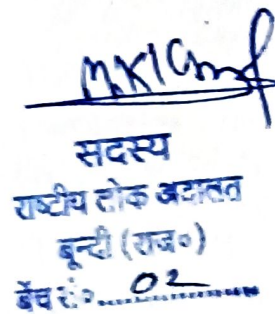 सदस्य
राष्ट्रीय लोक अदालत
बून्दी (राज०)
बेंच सं०.....02.....